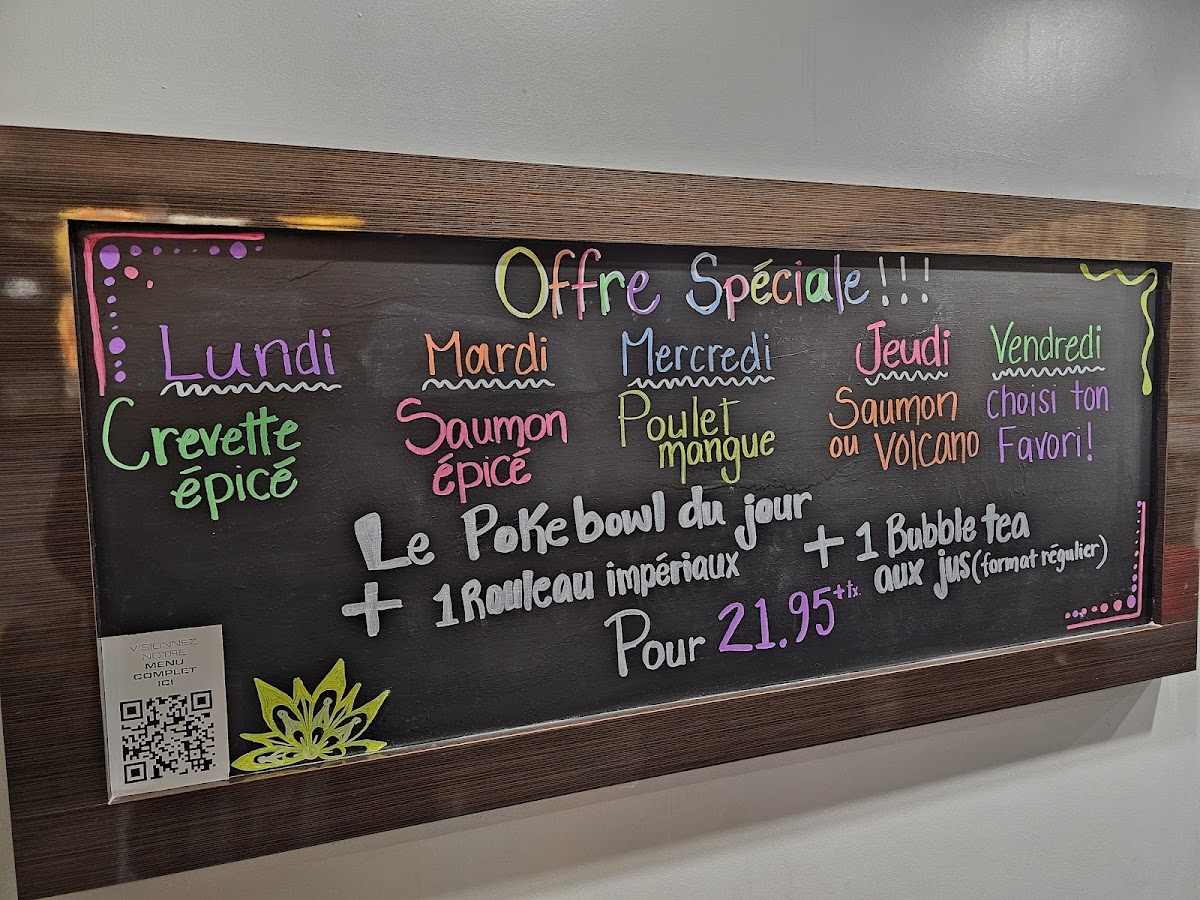 Offre Spéciale!!!
Lundi
Crevette
épicé
Mardi
Saumon
épicé
Mercredi
Poulet
mangue
Jeudi
Saumon
ou volcano
Vendredi
choisi ton
Favori!
Le Poke bowl du jour
+ 1 Rouleau impériaux
+ 1 Bubble tea
aux jus (format régulier)
Pour 21.95 ++tx.
VISIONNEZ
NOTRE
MENU
COMPLET
ICI